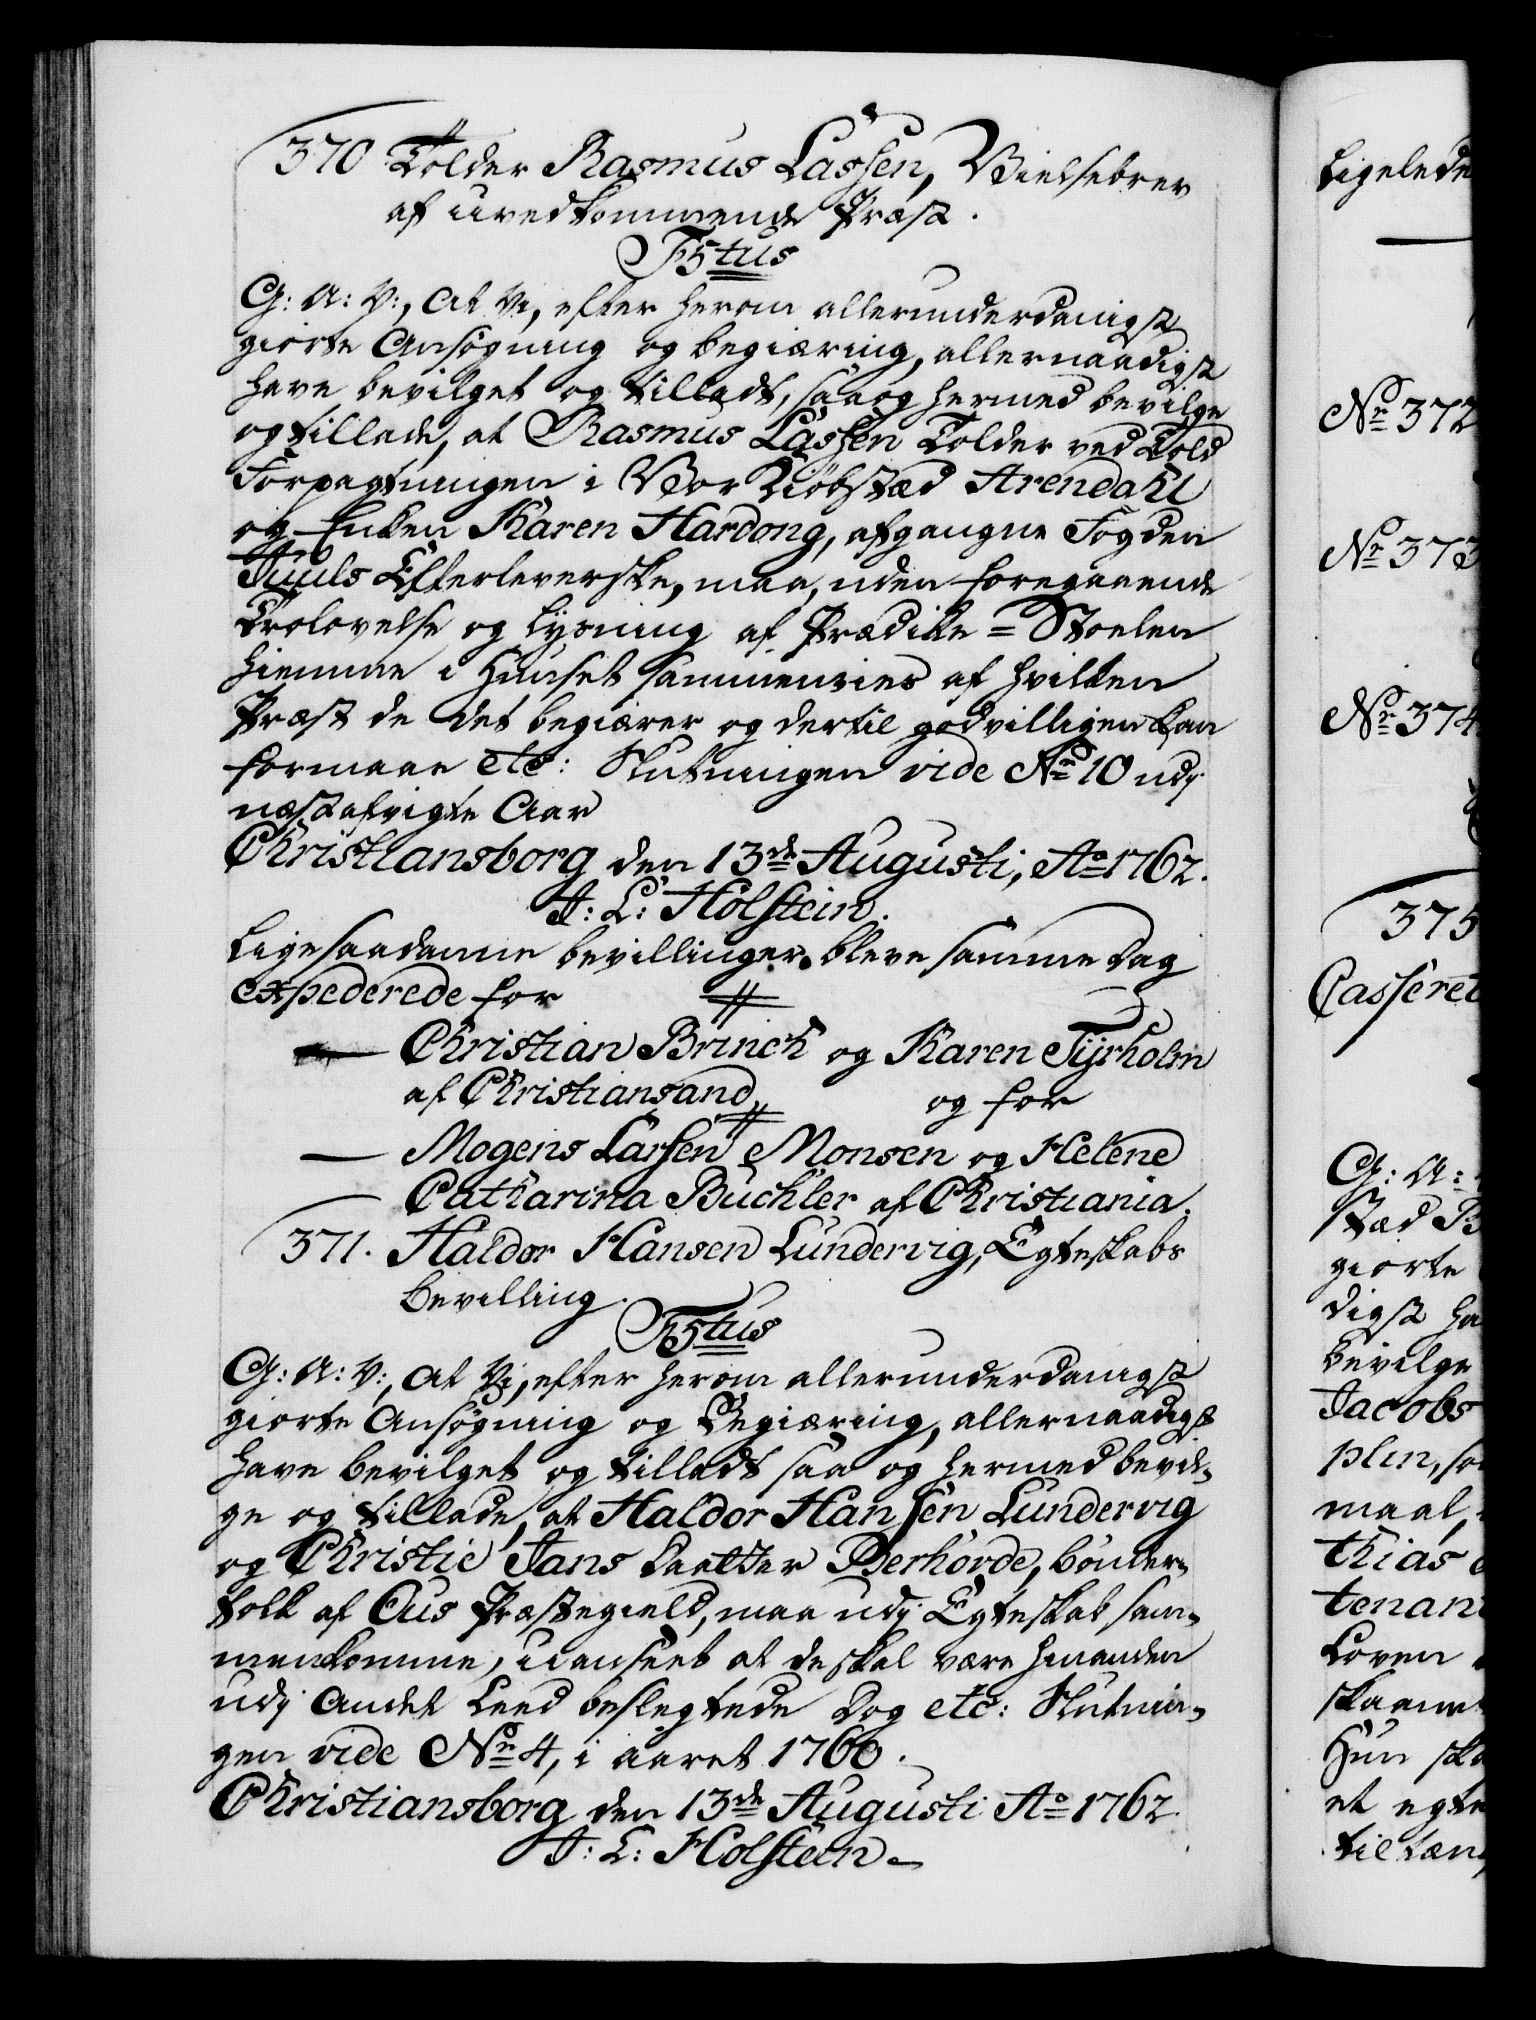 370 Tolder Rasmus Lassen, Vielsebrev
af uvedkommende Præst.
F5tus
G: A: V:, At Vi, efter herom allerunderdanigst
giorte Ansøgning og begiæring, allernaadigst
have bevilget og tilladt, saa og hermed bevilge
og tillade, at Rasmus Lassen Tolder ved Told
Forpagtningen i Vor Kiøbstæd Arendahl
og Enken Karen Hardong, afgangne Fogden
Juuls Efterleverske, maa, uden foregaaende
Trolovelse og Lysning af Prædike=Stoelen
hiemme i Huuset sammenvies af hvilken
Præst de det begiærer og dertil godvilligen kan
formaae etc: Slutningen vide No 10 udj
næstafvigte Aar
Christiansborg den 13de Augusti, Ao 1762.
J: L: Holstein.
Ligesaadanne bevillinger bleve samme Dag
expederede for
— Christian Brinch og Karen Tyrholm
af Christiansand, og for
— Mogens Larsen Monsen og Helene
— Catharina Buchler af Christiania.
371. Haldor Hansen Lundervig, Egteskabs
bevilling.
F5tus
G: A: V:, At Vi, efter herom allerunderdanigst
giorte Ansøgning og Begiæring, allernaadigst
have bevilget og tilladt saa og hermed bevil-
ge og tillade, at Haldor Hansen Lundervig
og Christie Jans Daatter Berhörde, bönder-
folk af Ous Præstegield, maa udj Egteskab sam-
menkomme, uanseet at de skal være hinanden
udj Andet Leed beslegtede Dog etc: Slutnin-
gen vide No 4, i aaret 1760.
Christiansborg den 13de Augusti Ao 1762.
J: L: Holstein.
No 372
No 373
No 374
375
G: A:
giorte
digst
bevilge
Jacobs
maal,
Hun